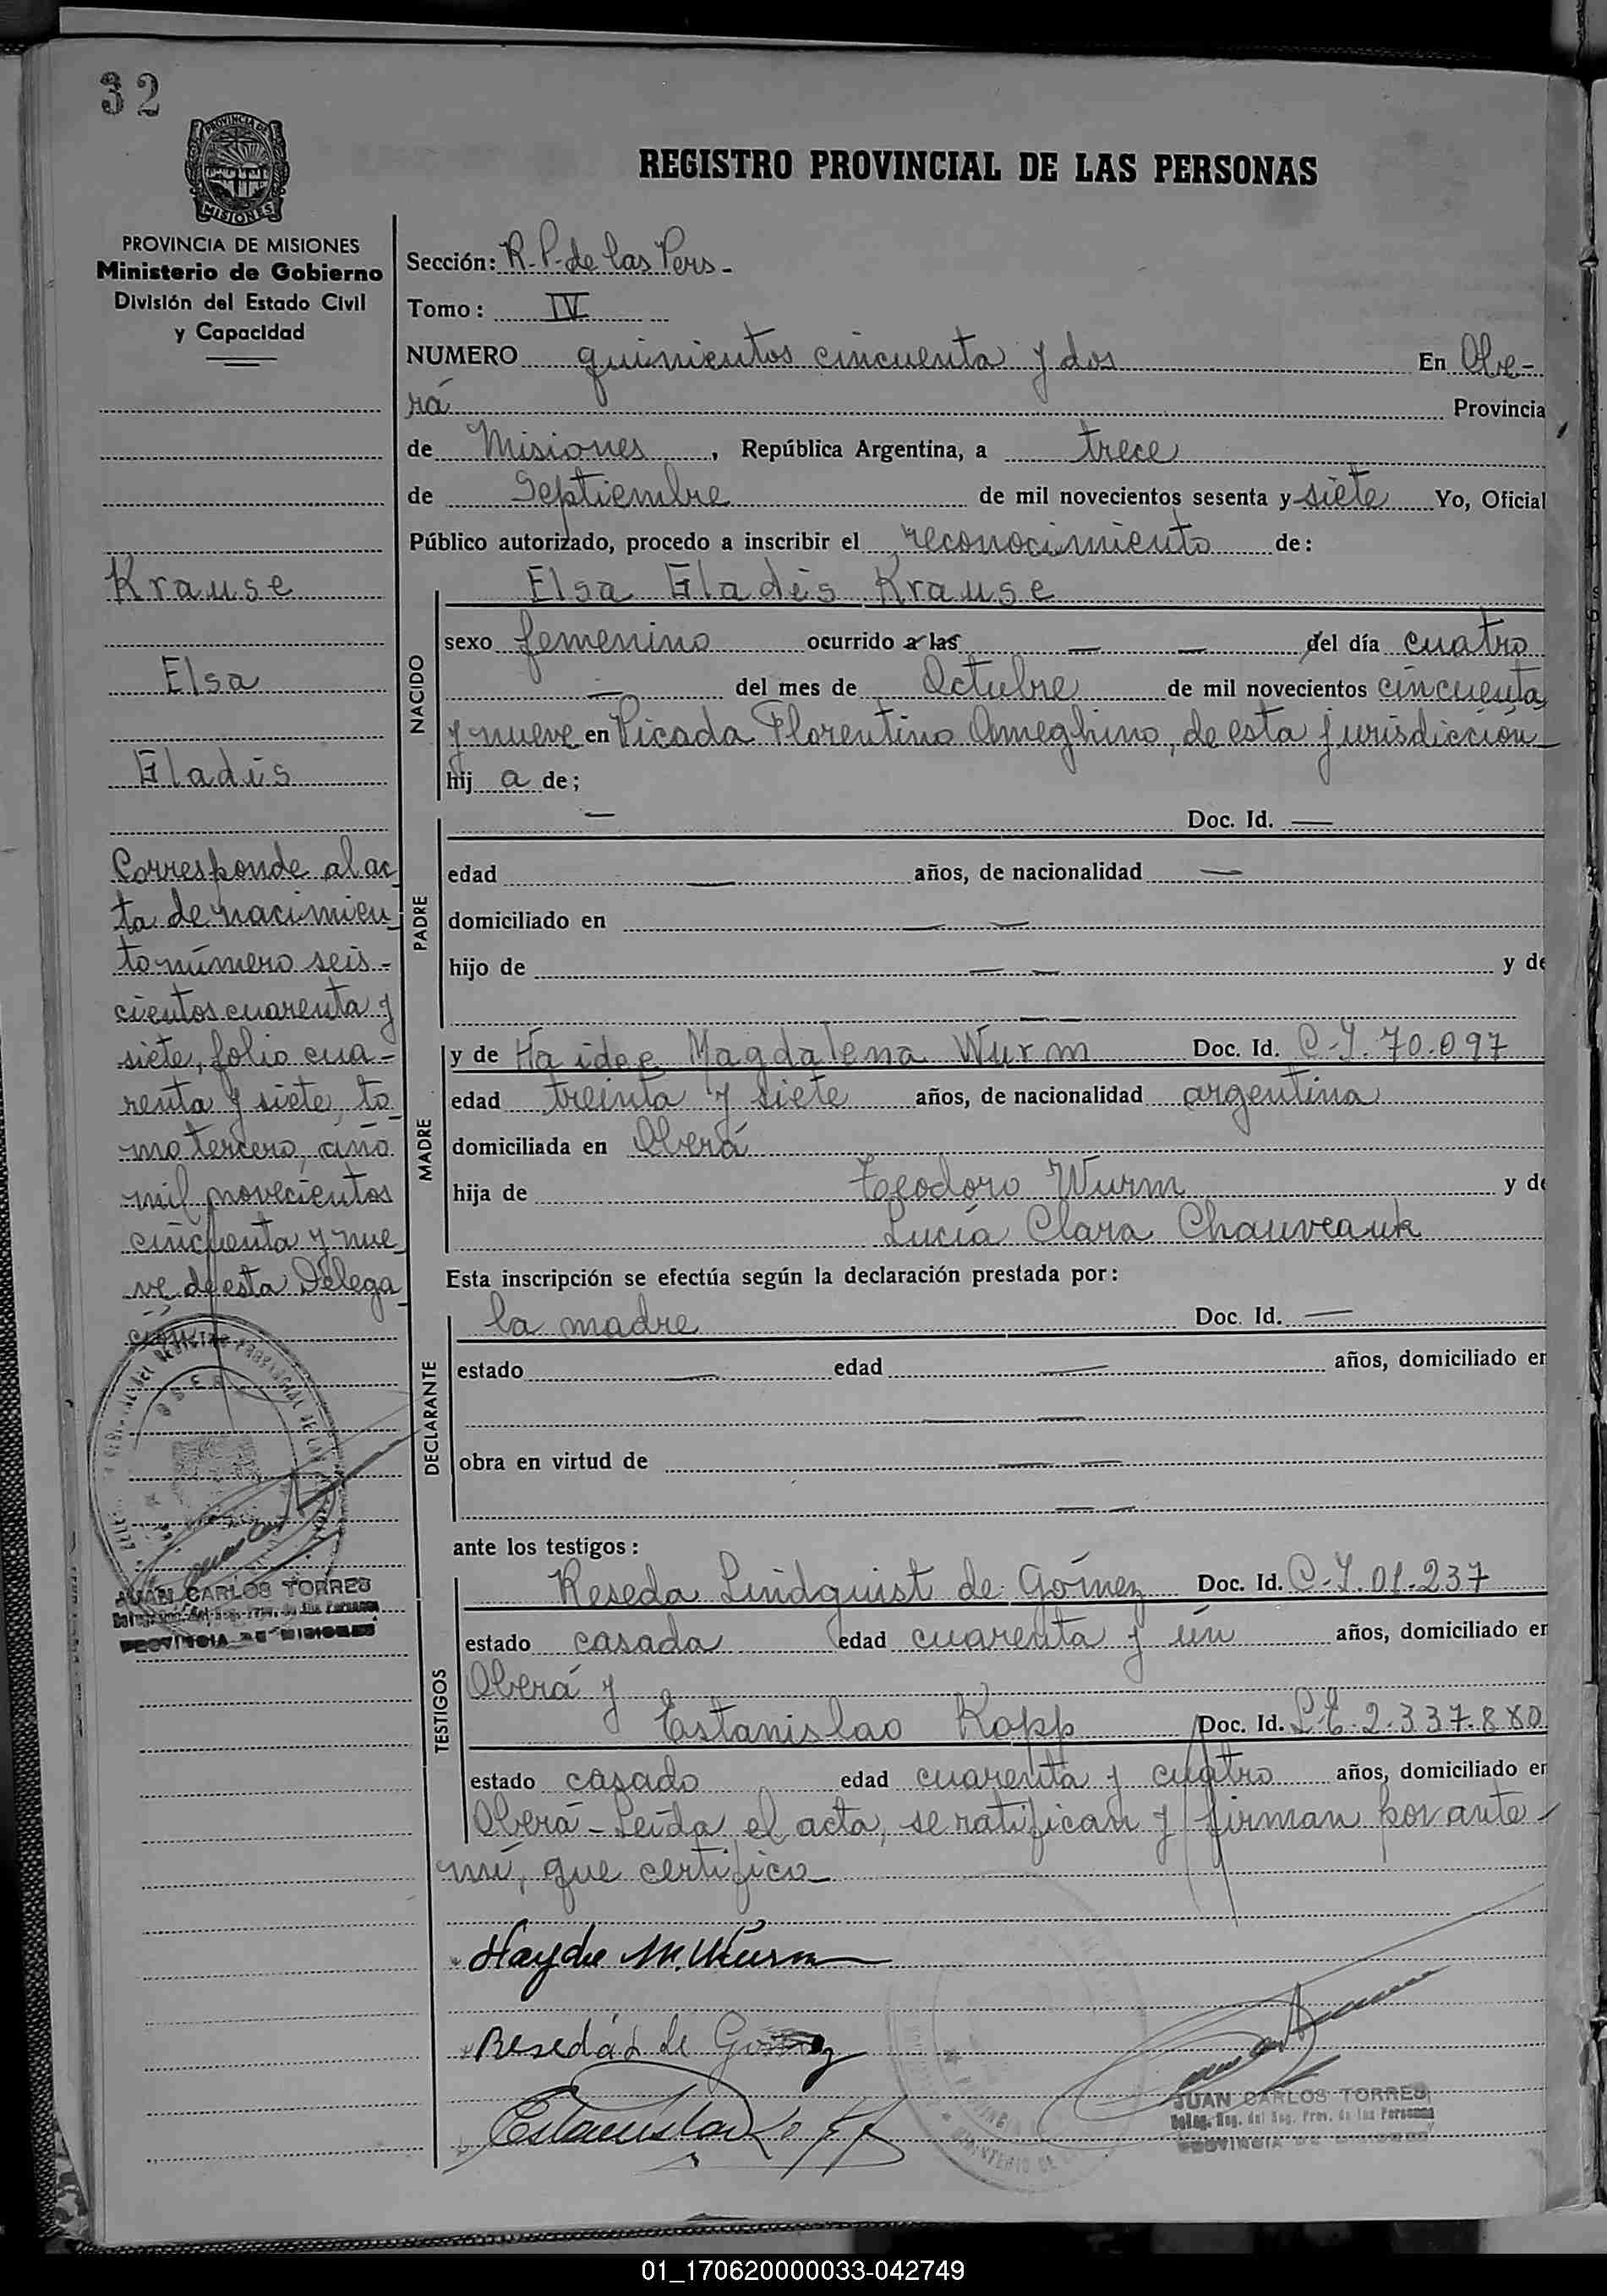 32
PROVINCIA DE
MISIONES
REGISTRO PROVINCIAL DE LAS PERSONAS
PROVINCIA DE MISIONES
Ministerio de Gobierno
División del Estado Civil
y Capacidad
Krause
Elsa
Gladis
Corresponde al ac
ta de nacimien
to número seis-
cientos cuarenta y
siete, folio cua-
renta y siete, to
mo tercero, año
mil novecientos
cincuenta y nue
ve de esta Delega
ción
JUAN CARLOS TORRES
PROVINCIA DE MISIONES
Sección: R. P. de las Pers-
Tomo: IV
NUMERO quinientos cincuenta y dos En Obe-
rá Provincia
de Misiones, República Argentina, a trece
de Septiembre de mil novecientos sesenta y siete Yo, Oficial
Público autorizado, procedo a inscribir el reconocimiento de:
NACIDO
Elsa Gladis Krause
sexo femenino ocurrido a las — — del día cuatro
— del mes de Octubre de mil novecientos cincuenta
y nueve en Picada Florentino Ameghino, de esta jurisdicción-
hij a de;
PADRE
— Doc. Id. —
edad — años, de nacionalidad —
domiciliado en — —
hijo de — — y de
— —
MADRE
y de Haidee Magdalena Wurm Doc. Id. C.I. 70.097
edad treinta y siete años, de nacionalidad argentina
domiciliada en Oberá
hija de Teodoro Wurm y de
Lucía Clara Chauveauk
Esta inscripción se efectúa según la declaración prestada por:
DECLARANTE
la madre Doc. Id. —
estado — edad — años, domiciliado en
— —
obra en virtud de — —
— —
ante los testigos:
TESTIGOS
Reseda Lindquist de Gómez Doc. Id. C.I. 01.237
estado casada edad cuarenta y un años, domiciliado en
Oberá y
Estanislao Kopp Doc. Id. L.E. 2.337.880
estado casado edad cuarenta y cuatro años, domiciliado en
Oberá - Leída el acta, se ratifican y firman por ante-
mí, que certifico-
Haydee M. Wurm
Reseda L de Gomez
Estanislao Kopp
JUAN CARLOS TORRES
Deleg. Reg. del Reg. Prov. de las Personas
PROVINCIA DE MISIONES
01_170620000033-042749